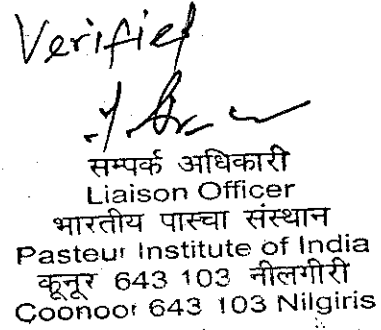 Verified
सम्पर्क अधिकारी
Liaison Officer
भारतीय पास्चा संस्थान
Pasteur Institute of India
कूनूर 643 103 नीलगीरी
Coonoor 643 103 Nilgiris